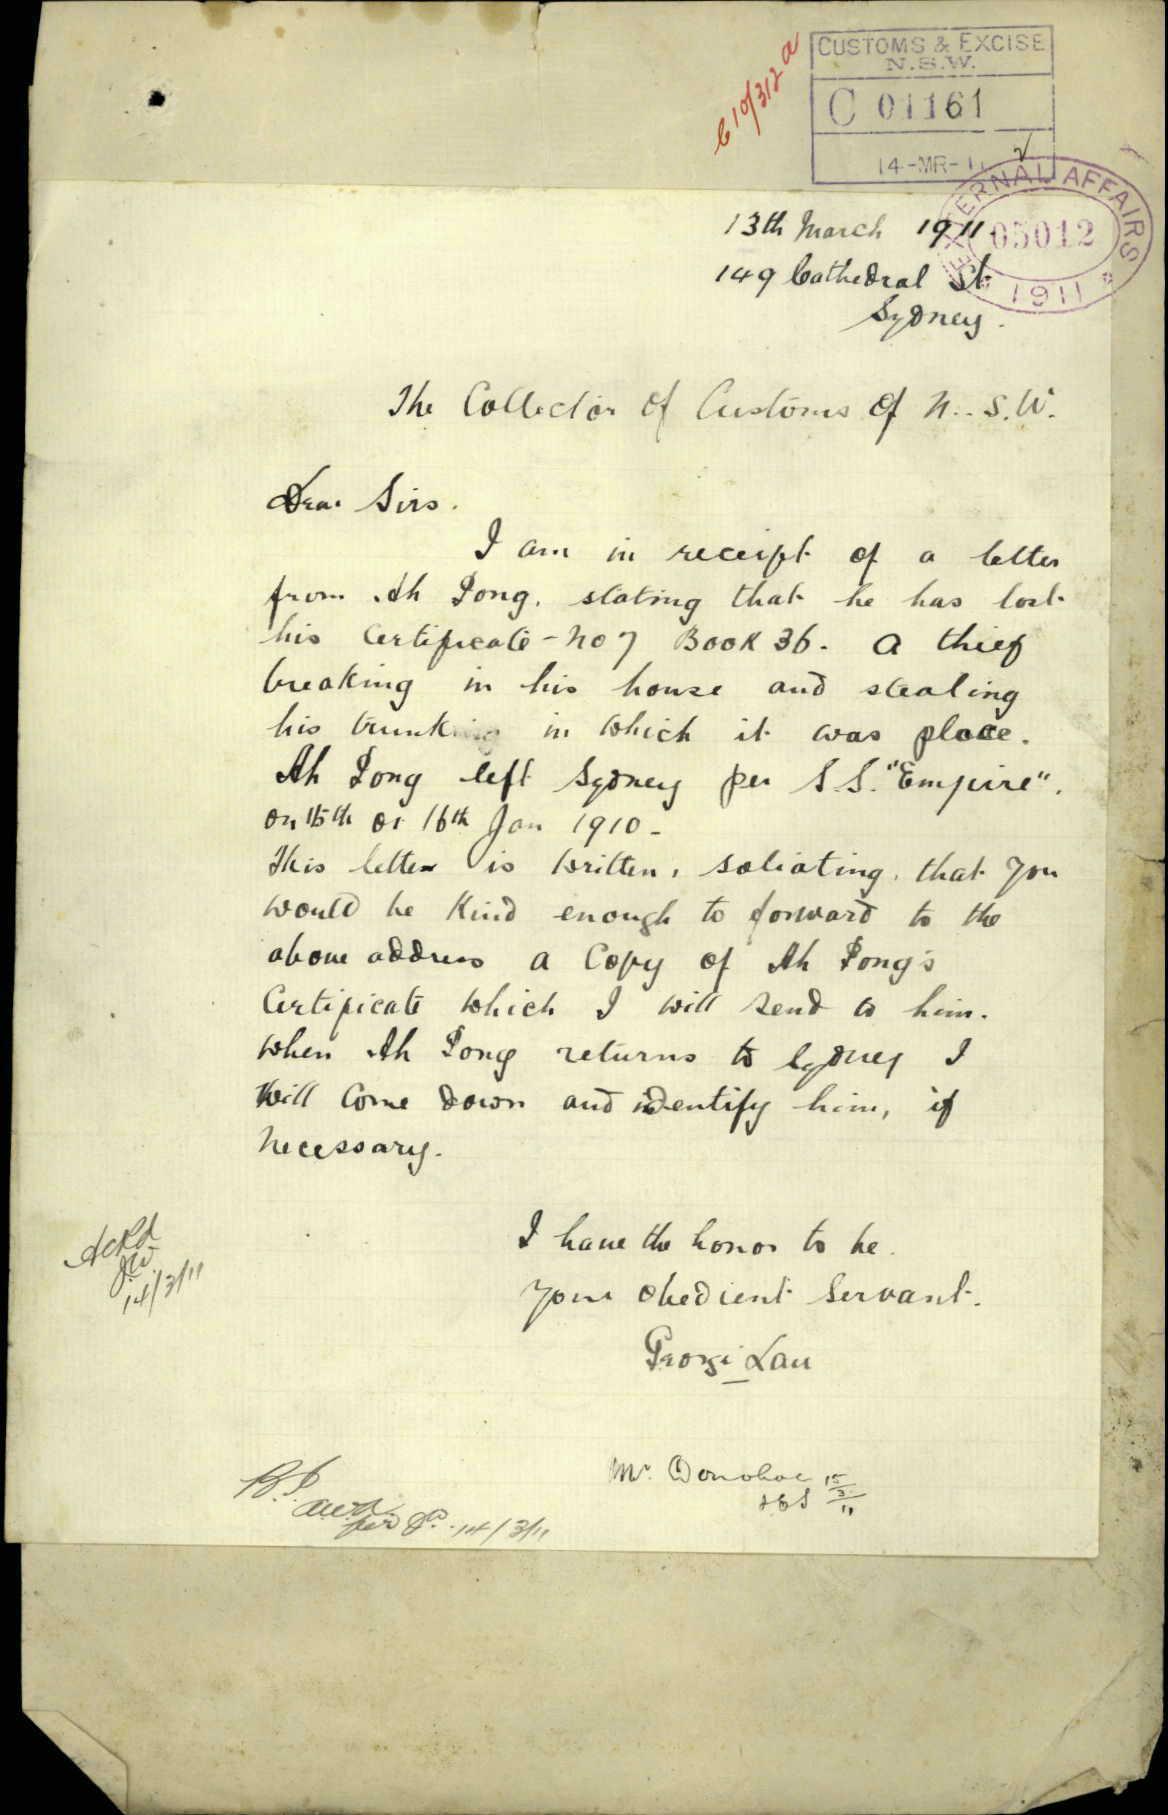 C10/312 a
CUSTOMS & EXCISE
N.S.W.
C 01161
14-MR-11
EXTERNAL AFFAIRS
05012
1911
13th March 1911
149 Cathedral St
Sydney.
The Collector of Customs of N.. S.W.
Dear Sirs.
I am in receipt of a letter
from Ah Pong. stating that he has lost
his Certificate - No 7 BOOK 36. A thief
breaking in his house and stealing
his trunk in which it was place.
Ah Pong left Sydney per S S. "Empire".
on 15th or 16th Jan 1910 -
This letter is written, soliating, that you
would be kind enough to forward to the
above address a Copy of Ah Pong's
Certificate which I will send to him.
when Ah Pong returns to Sydney I
will come down and identify him, if
necessary.
I have the honor to be.
Your obedient Servant.
George Lau
Ackd
14/3/11
Mr. Donohoe 15/3/11
B.F.
per 14/3/11